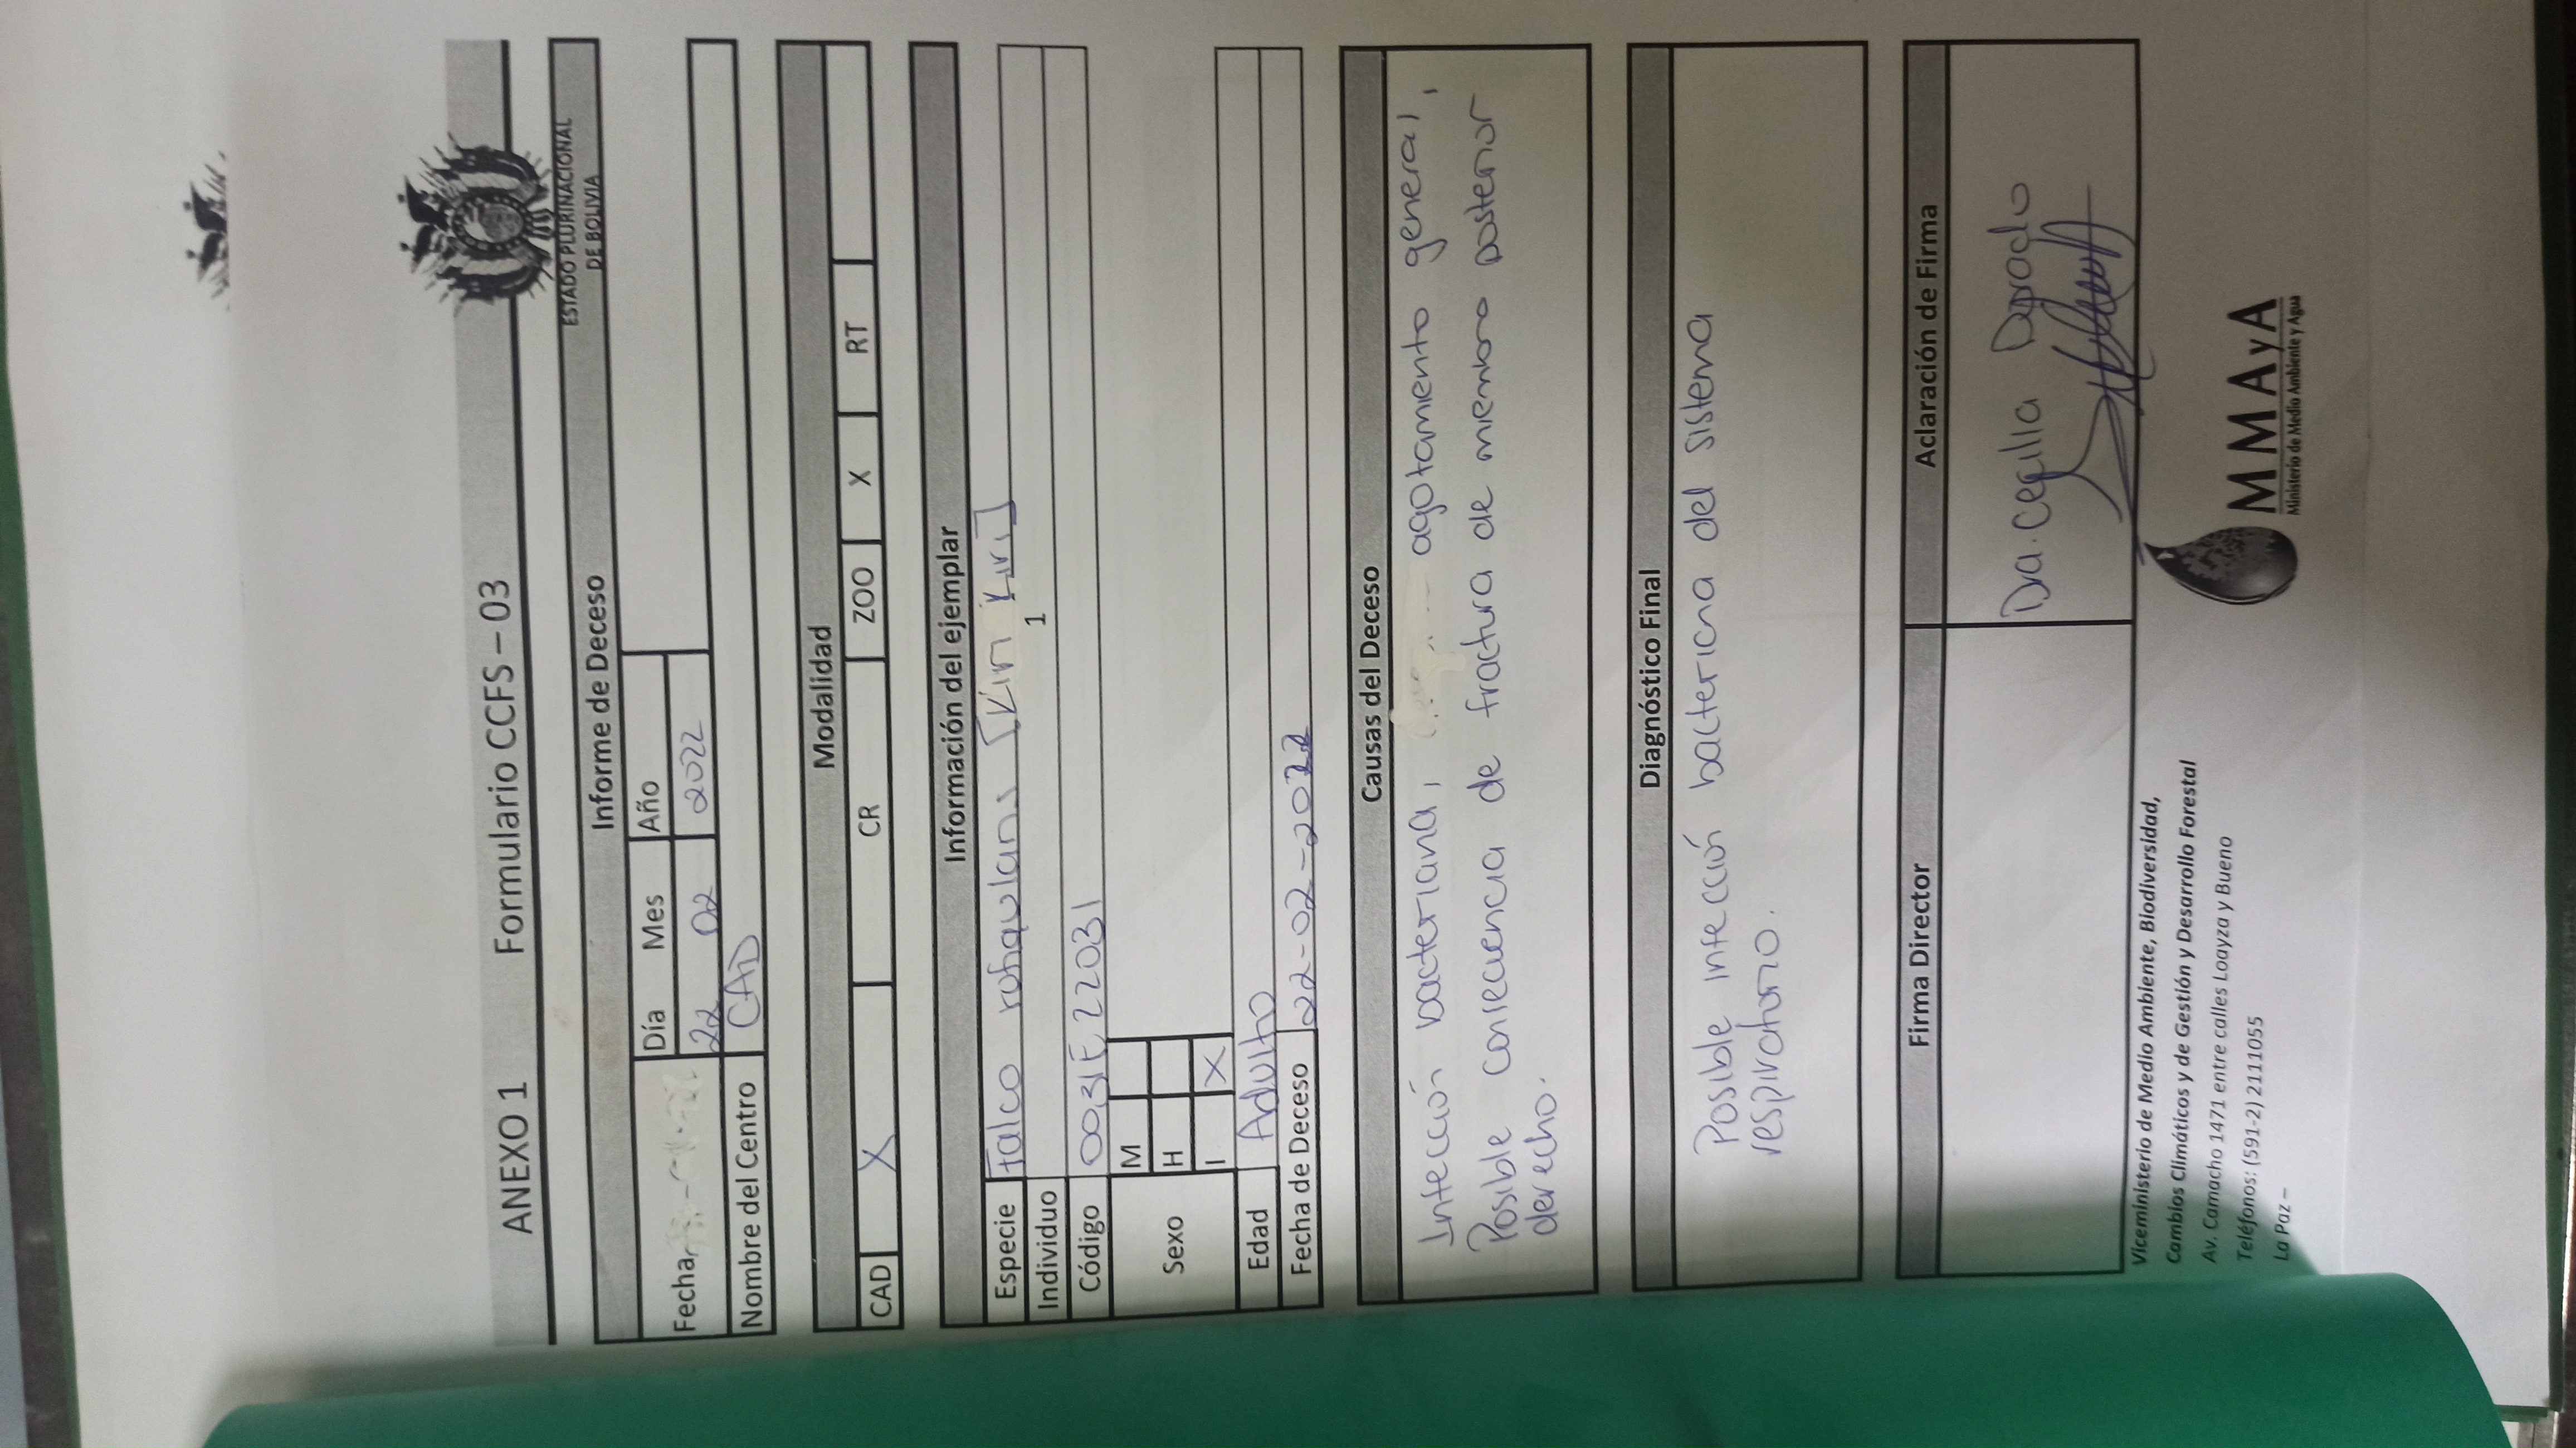 ANEXO 1 Formulario CCFS – 03
ESTADO PLURINACIONAL
DE BOLIVIA
Informe de Deceso
Fecha Día Mes Año
22 02 2022
Nombre del Centro CAD
Modalidad
CAD X CR ZOO X RT
Información del ejemplar
Especie Falco [Kiri Kiri]
Individuo 1
Código 0031E22031
Sexo
M
H
I X
Edad Adulto
Fecha de Deceso 22-02-2022
Causas del Deceso
Infección bacteriana, agotamiento general,
Posible consecuencia de fractura de miembro posterior
derecho.
Diagnóstico Final
Posible infección bacteriana del sistema
respiratorio.
Firma Director Aclaración de Firma
Dra. Cecilia Dorado
Viceministerio de Medio Ambiente, Biodiversidad,
Cambios Climáticos y de Gestión y Desarrollo Forestal
Av. Camacho 1471 entre calles Loayza y Bueno
Teléfonos: (591-2) 2111055
La Paz –
MMAyA
Ministerio de Medio Ambiente y Agua